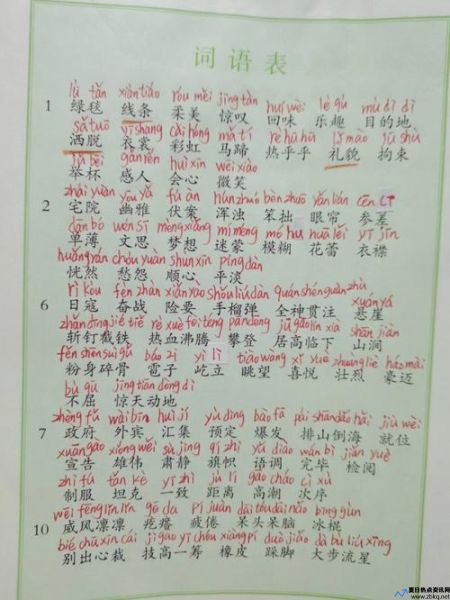 词语表
lǜ tǎn xiàn tiáo róu měi jīng tàn huí wèi lè qù mù dì dì
1 绿毯 线条 柔美 惊叹 回味 乐趣 目的地
sǎ tuō yī shang cǎi hóng mǎ tí rè hū hū lǐ mào jū shù
洒脱 衣裳 彩虹 马蹄 热乎乎 礼貌 拘束
jǔ bēi gǎn rén huì xīn wēi xiào
举杯 感人 会心 微笑
zhái yuàn yōu yǎ fú àn hún zhuó bèn zhuō yǎn lián cēn
2 宅院 幽雅 伏案 浑浊 笨拙 眼帘 参差
dān bó wén sī mèng xiǎng mí méng mó hu huā lěi yī jīn
单薄 文思 梦想 迷蒙 模糊 花蕾 衣襟
huǎng rán chóu yuàn shùn xīn píng dàn
恍然 愁怨 顺心 平淡
rì kòu fèn zhàn xiǎn yào shǒu liú dàn quán shén guàn zhù
xuán yá
6 日寇 奋战 险要 手榴弹 全神贯注 悬崖
zhǎn dīng jié tiě rè xuè fèi téng pān dēng jū gāo lín xià shān jiàn
斩钉截铁 热血沸腾 攀登 居高临下 山涧
fěn shēn suì gǔ báo zi yì lì tiào wàng xǐ yuè zhuàng liè háo mài
粉身碎骨 雹子 屹立 眺望 喜悦 壮烈 豪迈
bù qū jīng tiān dòng dì
不屈 惊天动地
zhèng fǔ wài bīn huì jí yù dìng bào fā pái shān dǎo hǎi jiù wèi
7 政府 外宾 汇集 预定 爆发 排山倒海 就位
xuān gào xióng wěi sù jìng qí zhì yǔ diào wán bì jiǎn yuè
宣告 雄伟 肃静 旗帜 语调 完毕 检阅
zhì fú tǎn kè yí zhì jù lí gāo cháo cì xù
制服 坦克 一致 距离 高潮 次序
wēi fēng lǐn lǐn gē da pí juàn dāi tóu dāi nǎo bīng gùn
10 威风凛凛 疙瘩 疲倦 呆头呆脑 冰棍
bié chū xīn cái jì gāo yì chóu xiàng pí duò jiǎo dà bù liú xīng
别出心裁 技高一筹 橡皮 跺脚 大步流星
夏日热点资讯网
www.zbkg.net